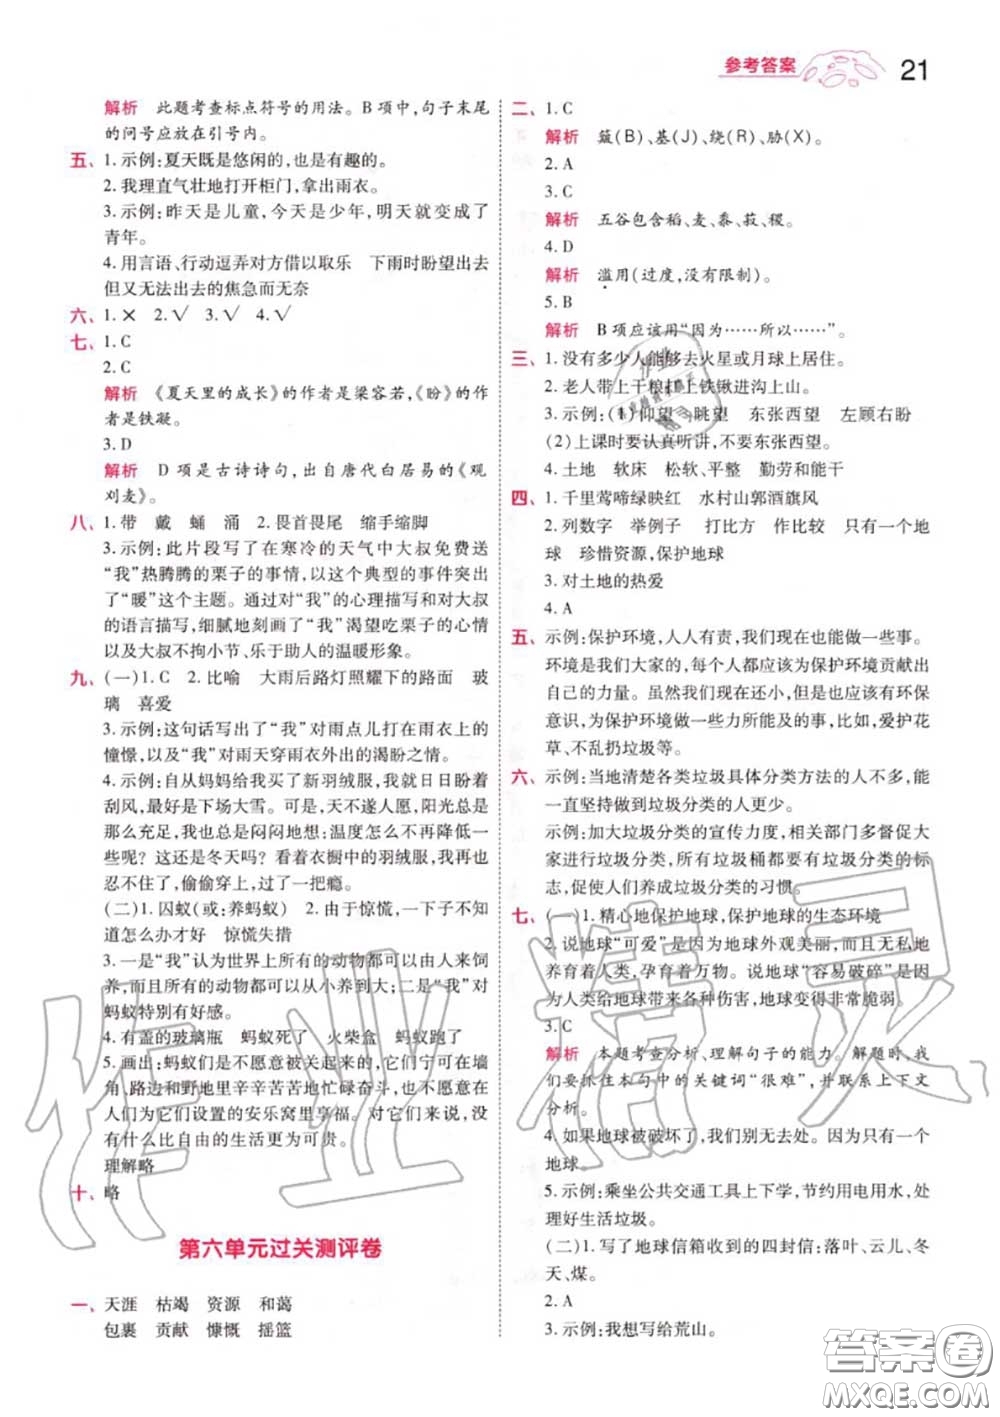 参考答案 21
解析 此题考查标点符号的用法。B 项中,句子末尾
的问号应放在引号内。
五、1. 示例:夏天既是悠闲的,也是有趣的。
2. 我理直气壮地打开柜门,拿出雨衣。
3. 示例:昨天是儿童,今天是少年,明天就变成了
青年。
4. 用言语、行动逗弄对方借以取乐 下雨时盼望出去
但又无法出去的焦急而无奈
六、1. × 2. √ 3. √ 4. √
七、1. C
2. C
解析 《夏天里的成长》的作者是梁容若,《盼》的作
者是铁凝。
3. D
解析 D 项是古诗诗句,出自唐代白居易的《观
刈麦》。
八、1. 带 戴 蛹 涌 2. 畏首畏尾 缩手缩脚
3. 示例:此片段写了在寒冷的天气中大叔免费送
“我”热腾腾的栗子的事情,以这个典型的事件突出
了“暖”这个主题。通过对“我”的心理描写和对大叔
的语言描写,细腻地刻画了“我”渴望吃栗子的心情
以及大叔不拘小节、乐于助人的温暖形象。
九、(一)1. C 2. 比喻 大雨后路灯照耀下的路面 玻
璃 喜爱
3. 示例:这句话写出了“我”对雨点儿打在雨衣上的
憧憬,以及“我”对雨天穿雨衣外出的渴盼之情。
4. 示例:自从妈妈给我买了新羽绒服,我就日日盼着
刮风,最好是下场大雪。可是,天不遂人愿,阳光总是
那么充足,我也总是闷闷地想:温度怎么不再降低一
些呢?这还是冬天吗?看着衣橱中的羽绒服,我再也
忍不住了,偷偷穿上,过了一把瘾。
(二)1. 囚蚁(或:养蚂蚁) 2. 由于惊慌,一下子不知
道怎么办才好 惊慌失措
3. 一是“我”认为世界上所有的动物都可以由人来饲
养,而且所有的动物都可以从小养到大;二是“我”对
蚂蚁特别有好感。
4. 有盖的玻璃瓶 蚂蚁死了 火柴盒 蚂蚁跑了
5. 画出:蚂蚁们是不愿意被关起来的,它们宁可在墙
角、路边和野地里辛辛苦苦地忙碌奋斗,也不愿意在
人们为它们设置的安乐窝里享福。对它们来说,没
有什么比自由的生活更为可贵。
理解略
十、略
第六单元过关测评卷
一、天涯 枯竭 资源 和蔼
包裹 贡献 慷慨 摇篮
二、1. C
解析 簸(B)、基(J)、绕(R)、胁(X)。
2. A
3. C
解析 五谷包含稻、麦、黍、菽、稷。
4. D
解析 滥用(过度,没有限制)。
5. B
解析 B 项应该用“因为……所以……”。
三、1. 没有多少人能够去火星或月球上居住。
2. 老人带上干粮扛上铁锹进沟上山。
3. 示例:(1)仰望 眺望 东张西望 左顾右盼
(2)上课时要认真听讲,不要东张西望。
4. 土地 软床 松软、平整 勤劳和能干
四、1. 千里莺啼绿映红 水村山郭酒旗风
2. 列数字 举例子 打比方 作比较 只有一个地
球 珍惜资源,保护地球
3. 对土地的热爱
4. A
五、示例:保护环境,人人有责,我们现在也应做一些事。
环境是我们大家的,每个人都应该为保护环境贡献出
自己的力量。虽然我们现在还小,但是应该有环保
意识,为保护环境做一些力所能及的事,比如,爱护花
草、不乱扔垃圾等。
六、示例:当地清楚各类垃圾具体分类方法的人不多,能
一直坚持做到垃圾分类的人更少。
示例:加大垃圾分类的宣传力度,相关部门多督促大
家进行垃圾分类,所有垃圾桶都要有垃圾分类的标
志,促使人们养成垃圾分类的习惯。
七、(一)1. 精心地保护地球,保护地球的生态环境
2. 说地球“可爱”是因为地球外观美丽,而且无私地
养育着人类,孕育着万物。说地球“容易破碎”是因
为人类给地球带来各种伤害,地球变得非常脆弱。
3. C
解析 本题考查分析、理解句子的能力。解题时,我
们要抓住本句中的关键词“很难”,并联系上下文
分析。
4. 如果地球被破坏了,我们别无去处。因为只有一个
地球。
5. 示例:乘坐公共交通工具上下学,节约用电用水,处
理好生活垃圾。
(二)1. 写了地球信箱收到的四封信:落叶、云儿、冬
天、煤。
2. A
3. 示例:我想写给荒山。
作业精灵
答案圈
MXQE.COM